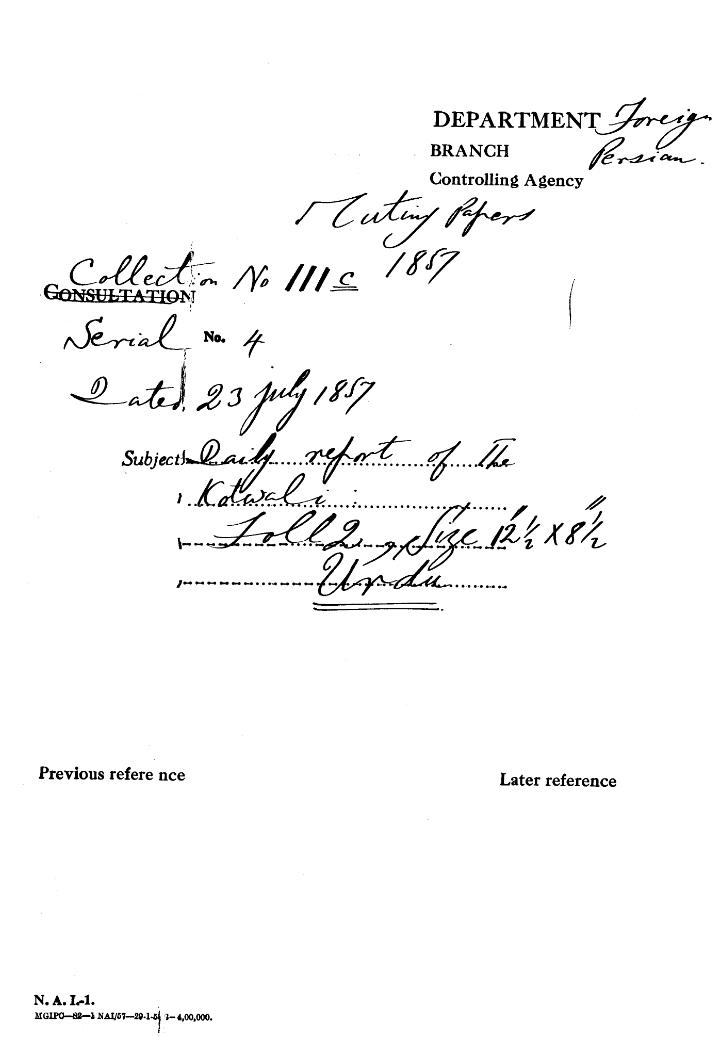 DEPARTMENT Foreign
BRANCH Persian.
Controlling Agency
Mutiny Papers
1857
Collection No 111 c
CONSULTATION
Serial No. 4
Dated 23 july 1857
Subject:- Daily report of the
Kotwali
Foll 2, Size 12½" X 8½"
Urdu
Previous refere nce
Later reference
N. A. I.-1.
MGIPC—82—1 NAI/57—29-1-5 —4,00,000.